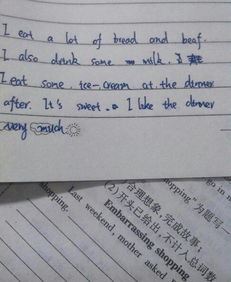 I eat a lot of bread and beaf.
I also drink some milk. I
I eat some ice-cream at the dinner
after. It's sweet. I like the dinner
very much
合理想象,完成故事;
(2)开头已给出,不计入总词数
Embarrassing shopping
Last weekend, mother asked
shopping.
shopping"为题写一
go in